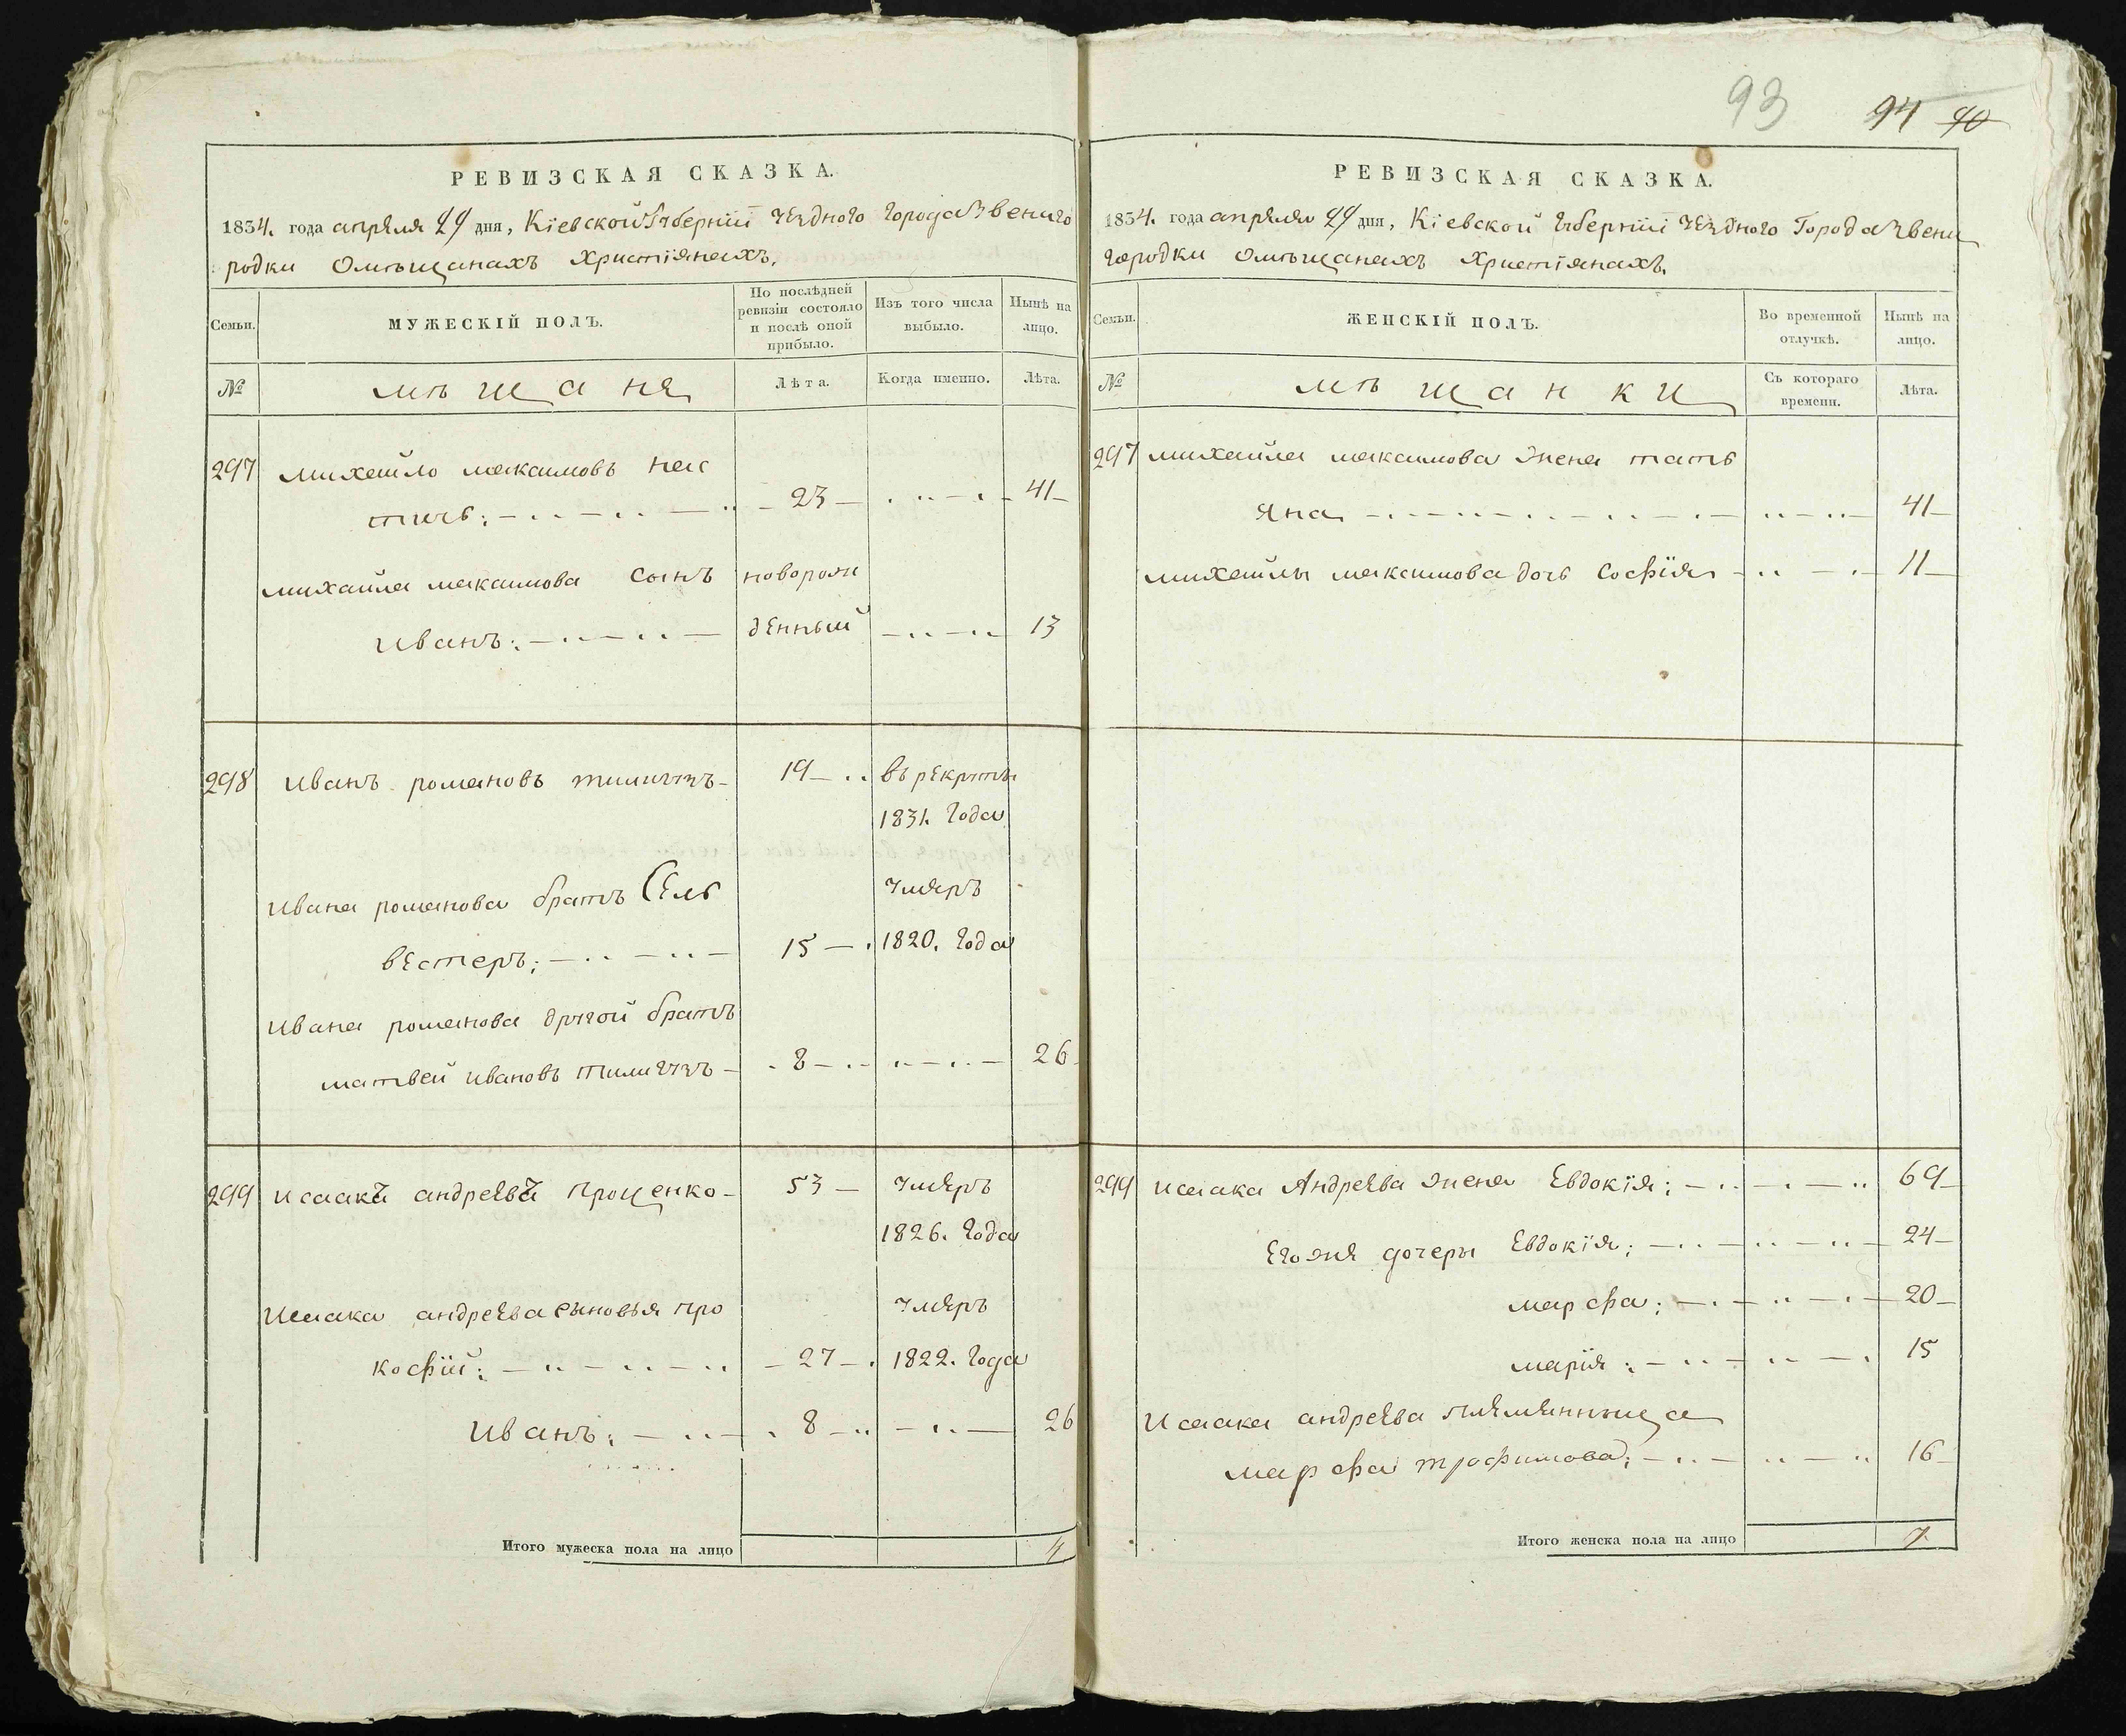 93 94 90
РЕВИЗСКАЯ СКАЗКА.
1834. года апреля 29 дня, Кіевской Губерніи уезднаго города Звениго
родки Омѣщанахъ Христіянахъ.
Семьи.
МУЖЕСКІЙ ПОЛЪ.
По послѣдней ревизіи состояло и послѣ оной прибыло.
Изъ того числа выбыло.
Нынѣ на лицо.
№
мѣщане
Лѣта.
Когда именно.
Лѣта.
297 михайло максимовъ пас
тичь: 23 41
михайла максимова сынъ новорож
иванъ: денный 13
298 иванъ романовъ 19 въ рекруты
1831. года
ивана романова братъ Сель умеръ
вестеръ: 15 1820. года
ивана романова другой братъ
матвей ивановъ 8 26
299 исаакй андреевй проценко 53 умеръ
1826. года
исаака андреева сыновья про умеръ
кофій: 27 1822. года
иванъ: 8 26
Итого мужеска пола на лицо 4
РЕВИЗСКАЯ СКАЗКА.
1834. года апреля 29 дня, Кіевской Губерніи уезднаго Города Звени
городки Омѣщанахъ Христіянахъ.
Семьи.
ЖЕНСКІЙ ПОЛЪ.
Во временной отлучкѣ.
Нынѣ на лицо.
№
мѣщанки
Съ котораго времени.
Лѣта.
297 михайла максимова жена тать
яна 41
михайлы максимова дочь софія 11
299 исаака Андреева жена Евдокія: 69
его же дочеры Евдокія: 24
марфа: 20
марія: 15
исаака андреева племянныца
марфа трофимова: 16
Итого женска пола на лицо 7